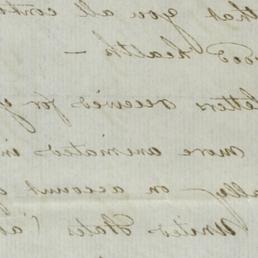 that you all conti
good health —
letters received for y
more animated in
ally on account of
United States (al